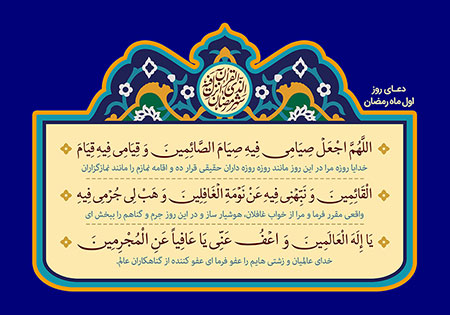 دعـای روز
اول ماه رمضان
شهر رمضان الذی انزل فیه القرآن
اللَّهُمَّ اجْعَلْ صِيَامِي فِيهِ صِيَامَ الصَّائِمِينَ وَ قِيَامِي فِيهِ قِيَامَ
خدایا روزه مرا در این روز مانند روزه روزه داران حقیقی قرار ده و اقامه نمازم را مانند نمازگزاران
الْقَائِمِينَ وَ نَبِّهْنِي فِيهِ عَنْ نَوْمَةِ الْغَافِلِينَ وَ هَبْ لِي جُرْمِي فِيهِ
واقعی مقرر فرما و مرا از خواب غافلان، هوشیار ساز و در این روز جرم و گناهم را ببخش ای
يَا إِلَهَ الْعَالَمِينَ وَ اعْفُ عَنِّي يَا عَافِياً عَنِ الْمُجْرِمِينَ
خدای عالمیان و زشتی هایم را عفو فرما ای عفو کننده از گناهکاران عالم.